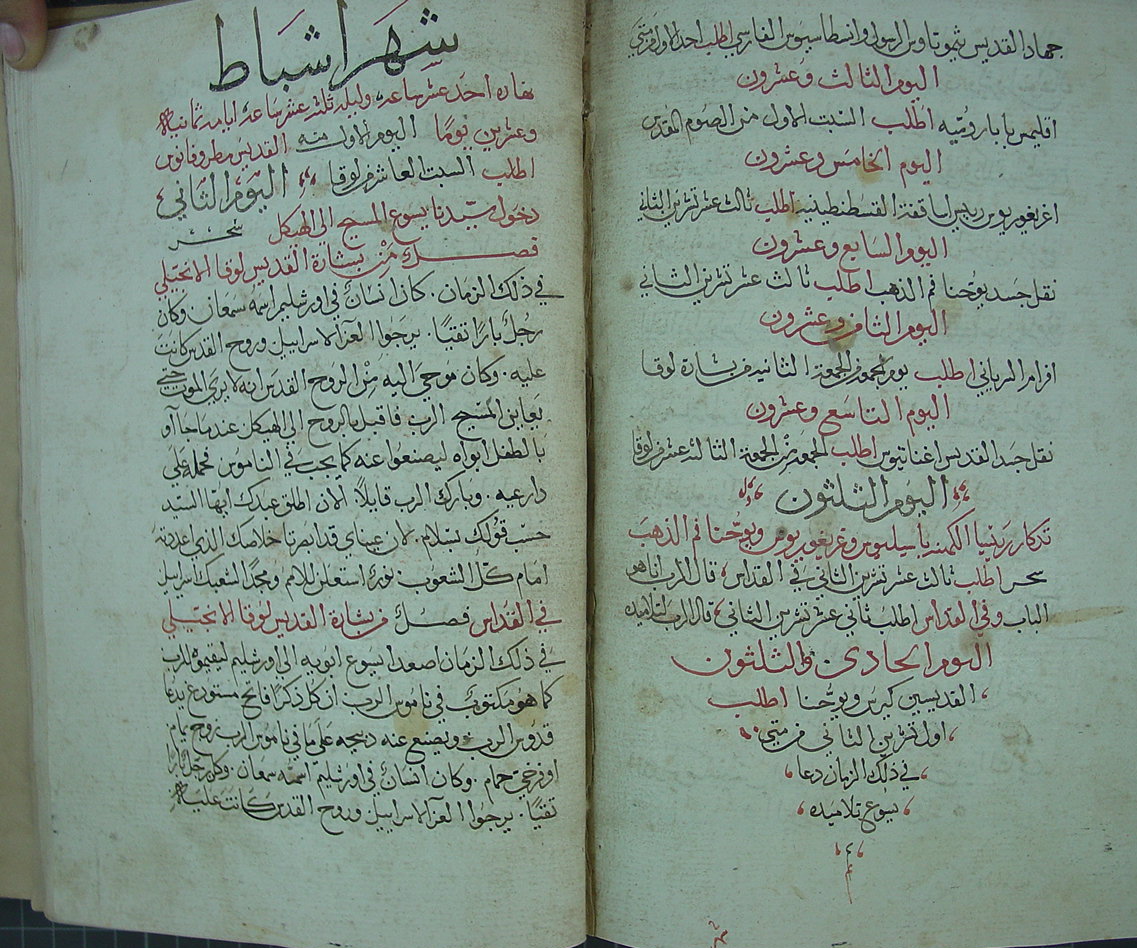 جهاد القديس ثيموتاوس الرسول وانسطاسيوس الفارسي اطلب احد الاول من متي
اليوم الثالث وعشرون
اقليمس بابا روميه اطلب السبت الاول من الصوم المقدس
اليوم الخامس وعشرون
اغريغوريوس رييس اساقفة القسطنطينيه اطلب ثالث عشر تشرين الثاني
اليوم السابع وعشرون
نقل جسد يوحنا فم الذهب اطلب ثالث عشر تشرين الثاني
اليوم الثامن وعشرون
افرام السرياني اطلب يوم الجمعة من الجمعة الثانيه من بشارة لوقا
اليوم التاسع وعشرون
نقل جسد القديس اغناتيوس اطلب الجمعة من الجمعة الثالثة عشر من لوقا
اليوم الثلثون
تذكار رييسا الكهنه باسيليوس وغريغوريوس ويوحنا فم الذهب
سحر اطلب ثالث عشر تشرين الثاني وفي القداس قال الرب انا هو
الباب وفي القداس اطلب ثاني عشر تشرين الثاني قال الرب لتلاميذه
اليوم الحادي والثلثون
القديسين كيرس ويوحنا اطلب
اول تشرين الثاني من متي
في ذلك الزمان دعا
يسوع تلاميذه
شهر اشباط
نهاره احد عشر ساعه وليله ثلثة عشر ساعه ايامه ثمانية
وعشرين يومًا اليوم الاول منه القديس مطروفانوس
اطلب السبت العاشر من لوقا اليوم الثاني
دخول سيدنا يسوع المسيح الى الهيكل سحر
فصل من بشارة القديس لوقا الانجيلي
في ذلك الزمان. كان انسان في اورشليم اسمه سمعان. وكان
رجلًا بارًا تقيًا. يرجوا العزا لاسراييل وروح القدس كانت
عليه. وكان موحي اليه من الروح القدس انه لا يري الموت حتي
يعاين المسيح الرب فاقبل بالروح الي الهيكل عندما جاآو
بالطفل ابواه ليصنعوا عنه كما يجب في الناموس فحمله علي
ذارعيه. وبارك الرب قايلًا الان اطلق عبدك ايها السيد
حسب قولك بسلام. لان عيناي قد ابصرتا خلاصك الذي اعددته
امام كل الشعوب. نورًا استعلن للامم ومجدًا لشعبك اسراييل
في القداس فصل من بشارة القديس لوقا الانجيلي
في ذلك الزمان اصعدا يسوع ابويه الي اورشليم ليقيموه للرب
كما هو مكتوب في ناموس الرب ان كل ذكرًا فاتح مستودع يدعا
قدوس الرب ويصنع عنه ذبيحه علي ما في ناموس الرب زوج يمام
او فرخي حمام. وكان انسان في اورشليم اسمه سمعان. وكان رجلًا بارًا
تقيًا. يرجوا العزا لاسراييل وروح القدس كانت عليه